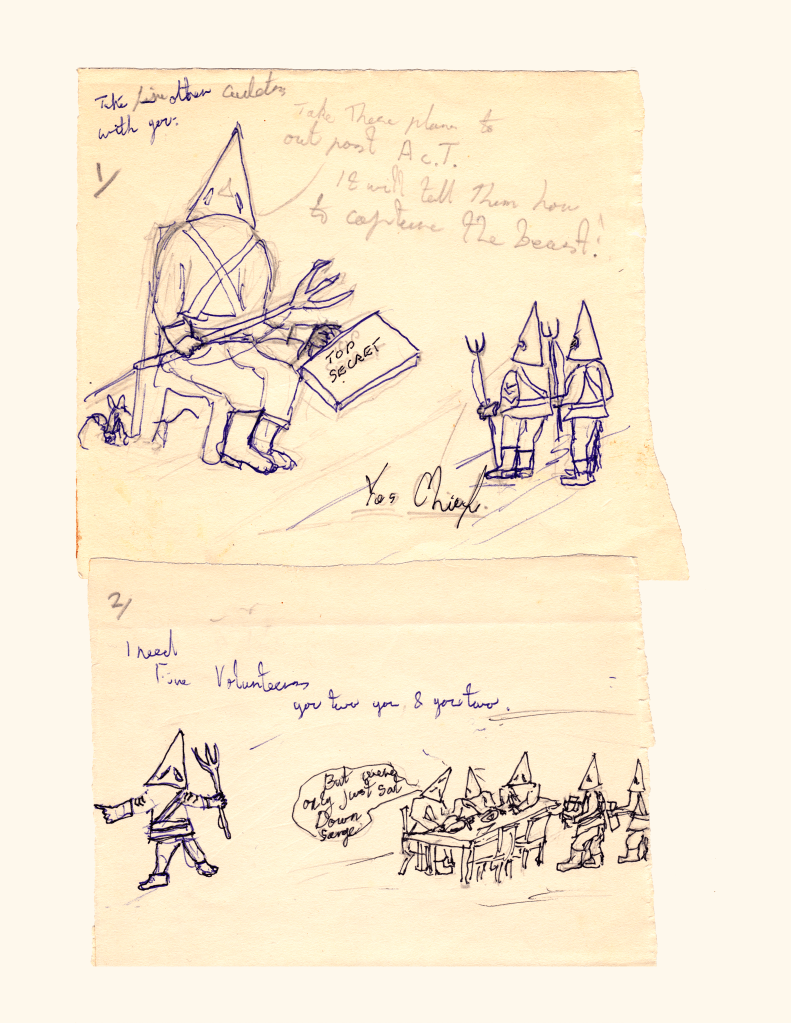 Take five other
with you.
Take these plans to
out post A c.T.
It will tell them how
to capture the beast!
1/
TOP
SECRET
Yes Chief.
2/
I need
Five Volunteers
you two you & you two.
But
only just sat
Down
Sarge